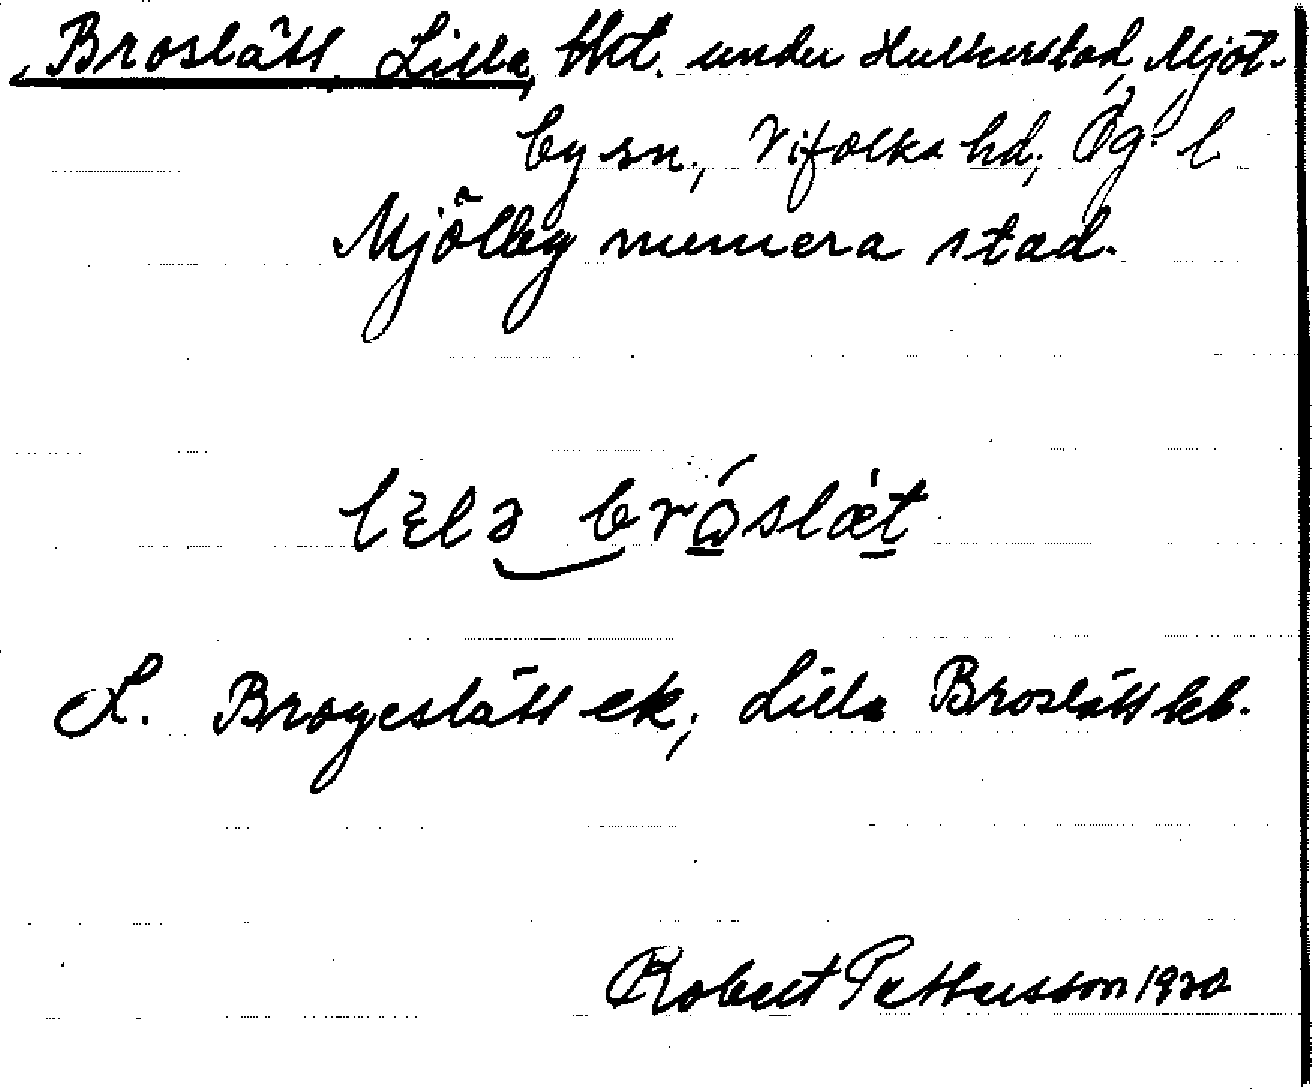 Broslätt, Lilla, tht. under Hulterstad, Mjöl-
by sn, Vifolka hd, Ög. l
Mjölby numera stad.
lɛlə bråslæt
L. Brogeslätt ek, Lilla Broslätt kb.
Robert Pettersson 1920